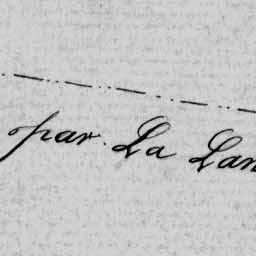 par La Lan